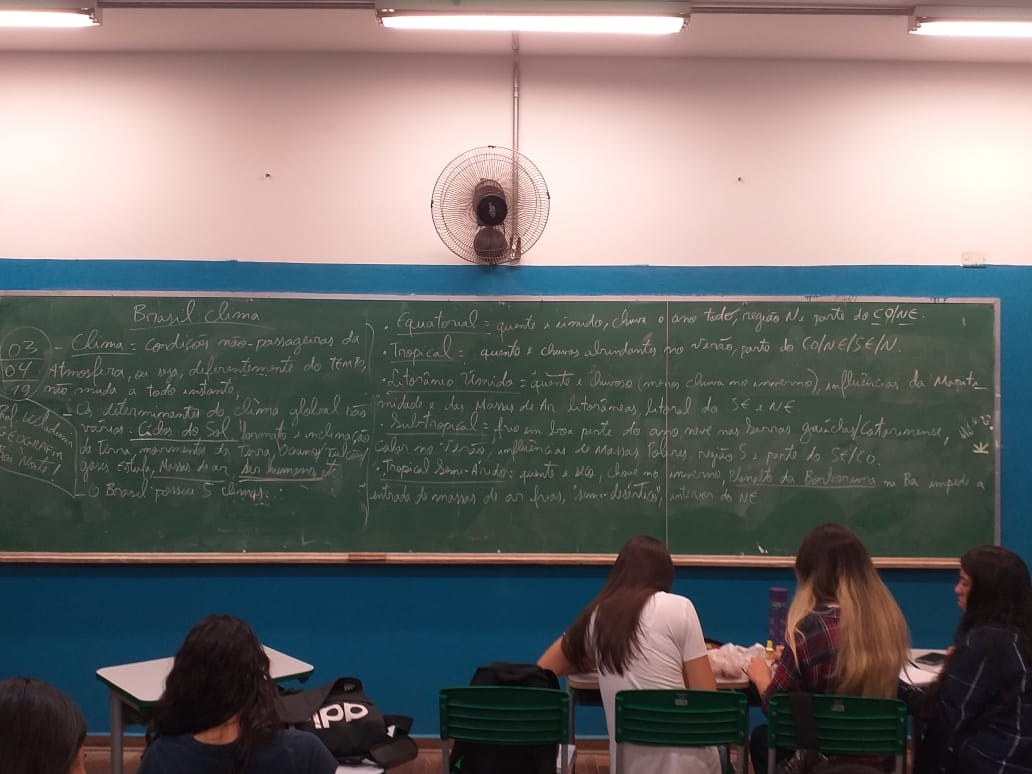 Brasil clima
03
04
19
- Clima = Condições não-passageiras da
Atmosfera, ou seja, diferentemente do TEMPO,
não muda a todo instante.
- Os determinantes do clima global são
vários: Ciclos do Sol, formato e inclinação
da Terra, movimentos da Terra, Oceanos/
gases Estufa, Massas de ar, ser humano, etc
- O Brasil possui 5 climas:
GEOGRAFIA
Boa Noite!
• Equatorial = quente e úmido, chuva o ano todo, região N e parte do CO/NE.
• Tropical = quente e chuvas abundantes no verão, parte do CO/NE/SE/N.
• Litorâneo Úmido = quente e chuvoso (menos chuva no inverno), influências da Mariti-
midade e das Massas de Ar litorâneas, litoral do SE e NE
• Sub-Tropical = frio em boa parte do ano, neve nas Serras gaúcha/Catarinense,
Calor no Verão, influências de Massas Polares, região S e parte do SE/CO.
• Tropical Semi-Árido: quente e seco, chove no inverno, Planalto da Borborema na Ba impede a
entrada de massas de ar frias, "semi-desértico", interior do NE
app